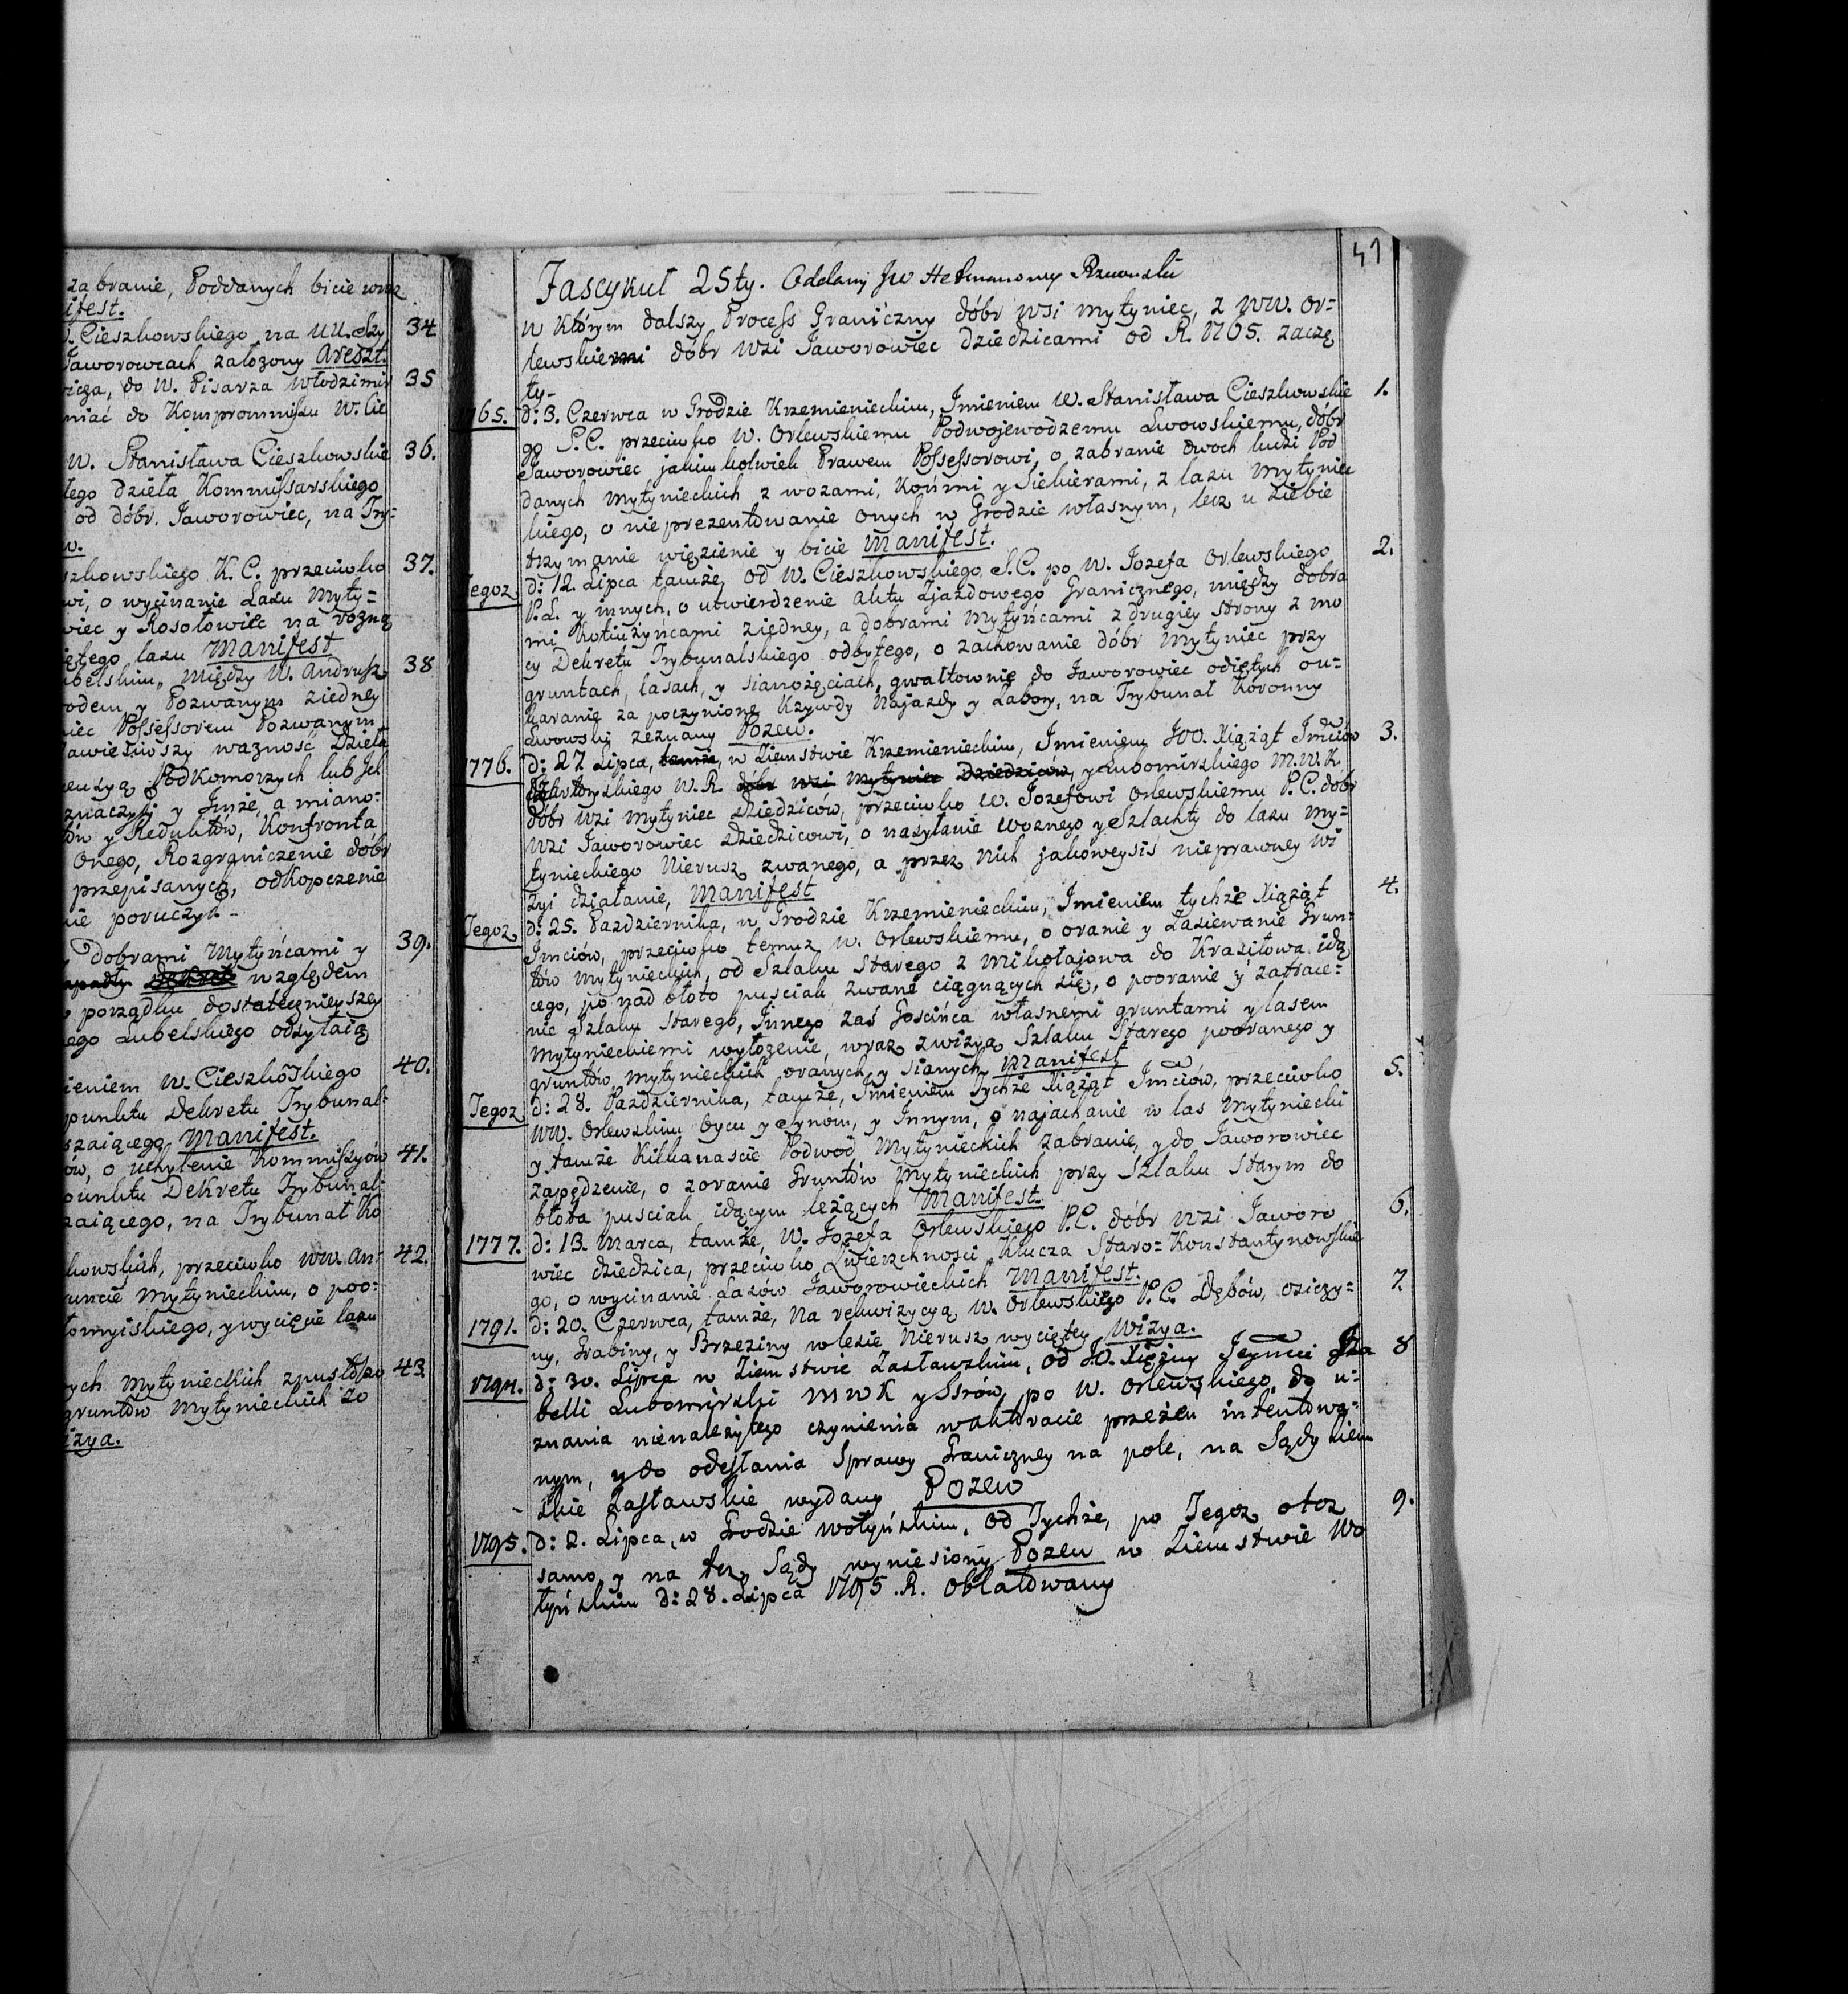 zabranie, Poddanych bicie wraz
ifest.
Cieszkowskiego na UU. Szy 34
Jaworowcach założony Areszt.
wicza, do W. Pisarza Włodzimir 35
miać do Kompromissu W. Cie
W. Stanisława Cieszkowskie 36.
łego dzieła Kommissarskiego
od dóbr Jaworowiec, na Try-
w.
szkowskiego K. C. przeciwko 37.
wi, o wycinanie Lasu Myty=
wiec y Rosołowiec na rozną
iętego lasu Manifest
ubelskim, między W. Andrusz 38
rodem y Pozwanym ziedney
iec Possessorem Pozwanym
ważność Dzieła
Podkomorzych lub Jch
znaczyli y Jnże, a miano=
tów y Reduktów, Konfronta
Onego, Rozgraniczenie dobr
przepisanych, odkopczenie
nie poruczyli-
dobrami Mytyńcami y 39.
względem
porządku dostateczniejszey
ego Lubelskiego odsyłaią
ieniem W. Cieszkoskiego 40.
punktu Dekretu Trybunal=
szaiącego Manifest.
ów, o uchylenie Kommissyów 41.
punktu Dekretu Trybunal=
zaiącego, na Trybunał Ko
kowskich, przeciwko WW. An= 42.
runcie Mytynieckim, o poo=
łomyiskiego, y wycięcie lasu
ych Mytynieckich spustoszo 43.
gruntów Mytynieckich zo
izya.
41
Fascykuł 25ty. Oddany Jw Hetmanowey Rzewuski
w którym dalszy Process Graniczny dóbr wsi Mytyniec, z WW. Or=
lewskiemi dóbr wsi Jaworowiec dziedzicami od R. 1765. zaczę
ty-
765. d: 3. Czerwca w Grodzie Krzemienieckim, Jmieniem W. Stanisława Cieszkowskie 1.
go S.C. przeciwko W. Orlewskiemu Podwojewodzemu Lwowskiemu, dóbr
Jaworowiec jakimkolwiek Prawem Possessorowi, o zabranie dwoch ludzi Pod
danych Mytynieckich z wozami, końmi y Siekierami, z lasu Mytyniec
kiego, o nieprezentowanie onych w Grodzie własnym, lecz u siebie
trzymanie więzienie y bicie Manifest.
Tegoz d: 12. Lipca tamże, od W. Cieszkowskiego S.C. po W. Jozefa Orlewskiego 2.
P.L. y innych, o utwierdzenie Aktu Zjazdowego Granicznego, między dobra
mi Kotiużyńcami ziedney, a dobrami Mytyńcami z drugiey strony z mo
cy Dekretu Trybunalskiego odbytego, o zachowanie dóbr Mytyniec przy
gruntach, lasach, y sianożęciach, gwałtownie do Jaworowiec odiętych ou=
karanie za poczynione Krzywdy Najazdy y Zabory, na Trybunał Koronny
Lwowski zeznany Pozew.
1776. d: 27 Lipca, tamże, w Ziemstwie Krzemienieckim, Jmieniem JOO. Xiążąt Jmciów 3.
W. R. dóbr wsi Mytyniec Dziedziców, y Lubomirskiego M.W.K.
dóbr wsi Mytyniec Dziedziców, przeciwko W. Jozefowi Orlewskiemu P.C. dóbr
wsi Jaworowiec Dziedzicowi, o nasyłanie Woznego y Szlachty do lasu My=
tynieckiego Nierusz zwanego, a przez nich jakoweysis nieprawney wi
zyi działanie, Manifest
Tegoz d: 25. Pazdziernika, w Grodzie Krzemienieckim, Jmieniem tychże Xiążąt 4.
Jmciów, przeciwko temuz W. Orlewskiemu, o oranie y Zasiewanie Grun=
tów Mytynieckich, od Szlaku Starego z Mikołajowa do Krasiłowa idą
cego, po nad błoto pusciak zwane ciągnących się, o pooranie y zatrace=
nie Szlaku Starego, Jnnego zaś Gościńca własnemi gruntami y lasem
Mytynieckiemi wyłożenie, wraz z wizyą Szlaku Starego pooranego y
gruntów Mytynieckich oranych y sianych Manifest
Tegoz d: 28. Pazdziernika, tamże, Jmieniem Tychże Xiążąt Jmciów, przeciwko 5.
WW. Orlewskim Oycu y Synów, y Jnnym, o najachanie w las Mytyniecki
y tamże Kilkanascie Podwod Mytynieckich zabranie, y do Jaworowiec
zapędzenie, o zoranie Gruntów Mytynieckich przy Szlaku Starym do
błota pusciak idącym leżących Manifest.
1777. d: 13. Marca, tamże, W. Jozefa Orlewskiego P.C. dóbr wsi Jaworo 6.
wiec dziedzica, przeciwko Zwierzchnosci Klucza Staro=Konstantynowskie
go, o wycinanie Lasów Jaworowieckich Manifest.
1791. d: 20. Czerwca, tamże, na rekwizycyą W. Orlewskiego P.C. Dębów, osiczy= 7.
ny, Grabiny, y Brzeziny w lesie Nierusz wyciętey Wizya.
1794. d: 30. Lipca w Ziemstwie Zasławskim, od JO. Xiężny Jeymci Jza 8
belli Lubomirski M W K y SSrów, po W. Orlewskiego, do u=
znania nienależytego czynienia w aktoracie przezeń intentowa=
nym, y do odesłania Sprawy Graniczney na pole, na Sądy Ziem
skie Zasławskie wydany Pozew
1795. d: 2. Lipca, w Grodzie Wołyńskim, od Tychże, po Tegoz, o toz 9.
samo, y na tez Sądy wyniesiony Pozew w Ziemstwie Wo
łyńskim d: 28. Lipca 1795. R. oblatowany